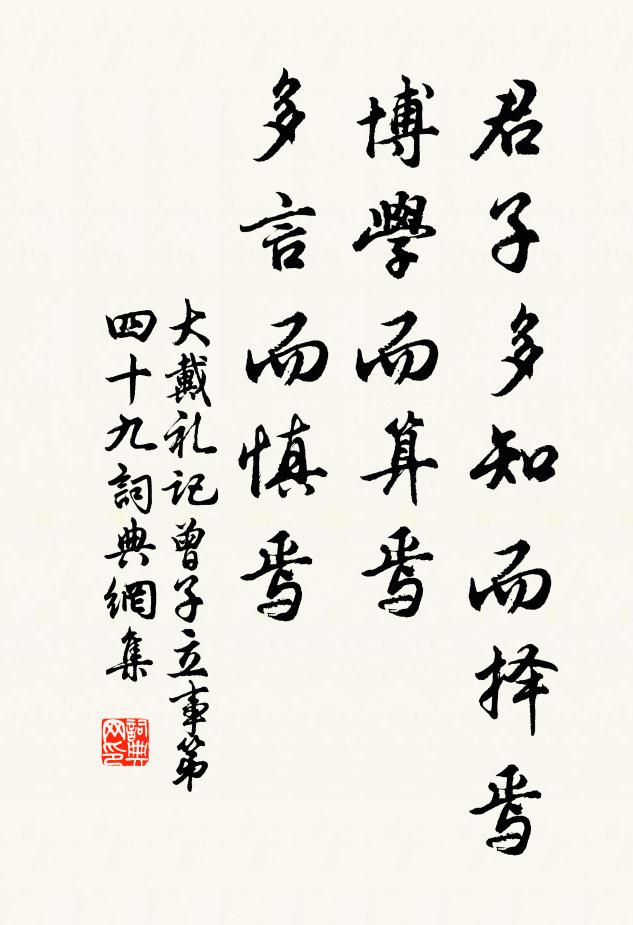 君子多知而择焉
博學而算焉
多言而慎焉
大戴礼记曾子立事第
四十九詞典網集
詞典
网印